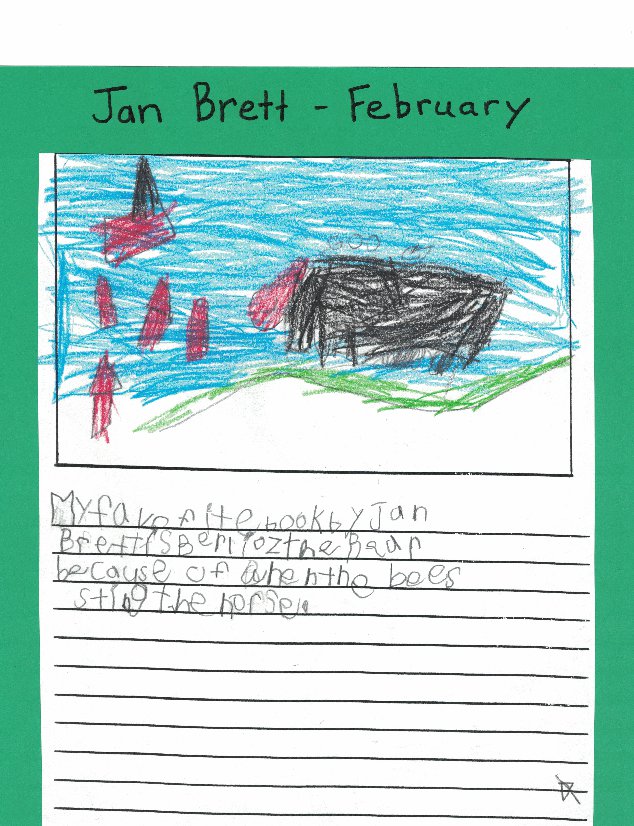 Jan Brett - February
My favorite book by Jan
Brett is Berlioz the Baar
because of when the bees
sting the horse.